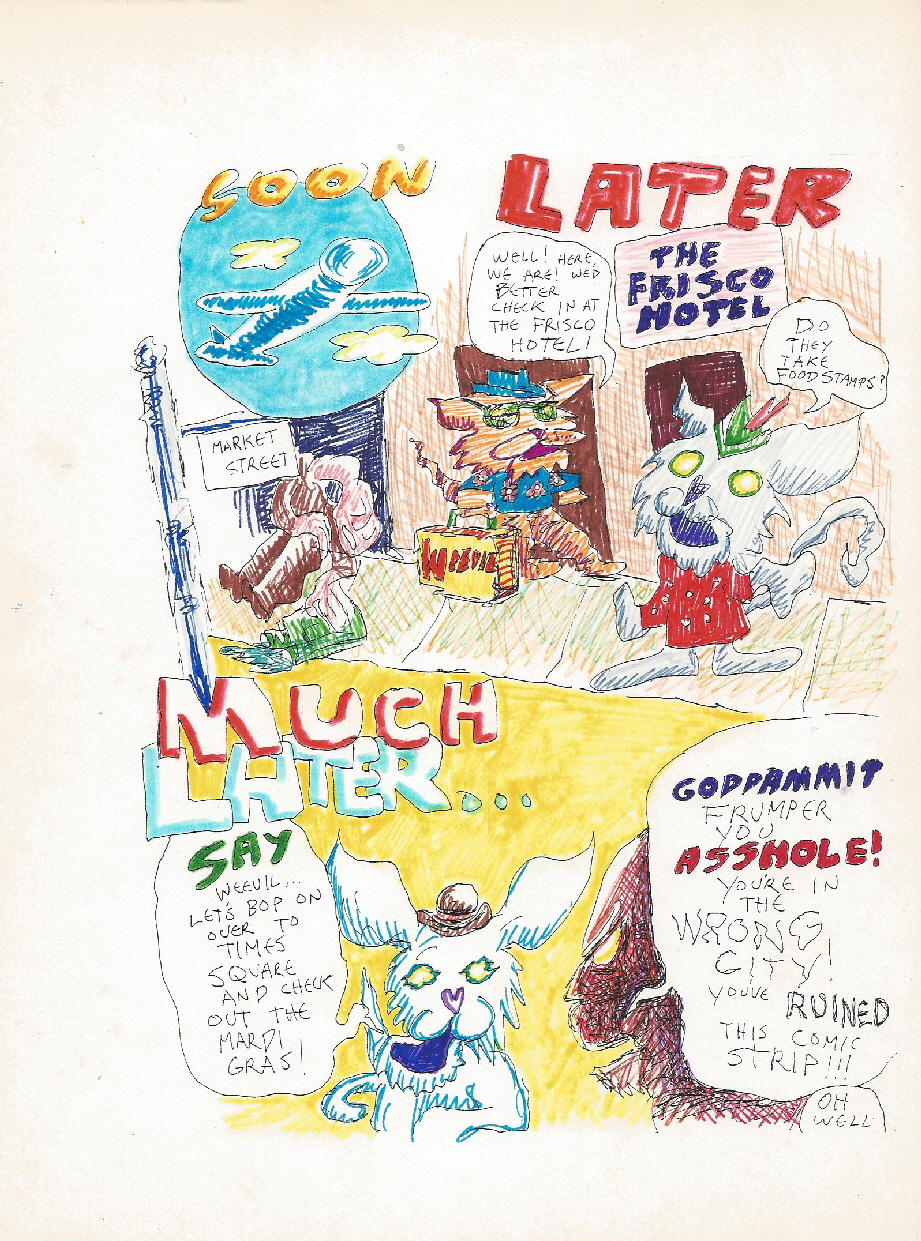 SOON
LATER
WELL! HERE,
WE ARE! WE'D
BETTER
CHECK IN AT
THE FRISCO
HOTEL!
THE
FRISCO
HOTEL
DO
THEY
TAKE
FOODSTAMPS?
MARKET
STREET
WEEVIL
MUCH
LATER...
SAY
WEEVIL...
LET'S BOP ON
OVER TO
TIMES
SQUARE
AND CHECK
OUT THE
MARDI
GRAS!
GODDAMMIT
FRUMPER
YOU
ASSHOLE!
YOU'RE IN
THE
WRONG
CITY!
YOUVE RUINED
THIS COMIC
STRIP!!!
OH
WELL